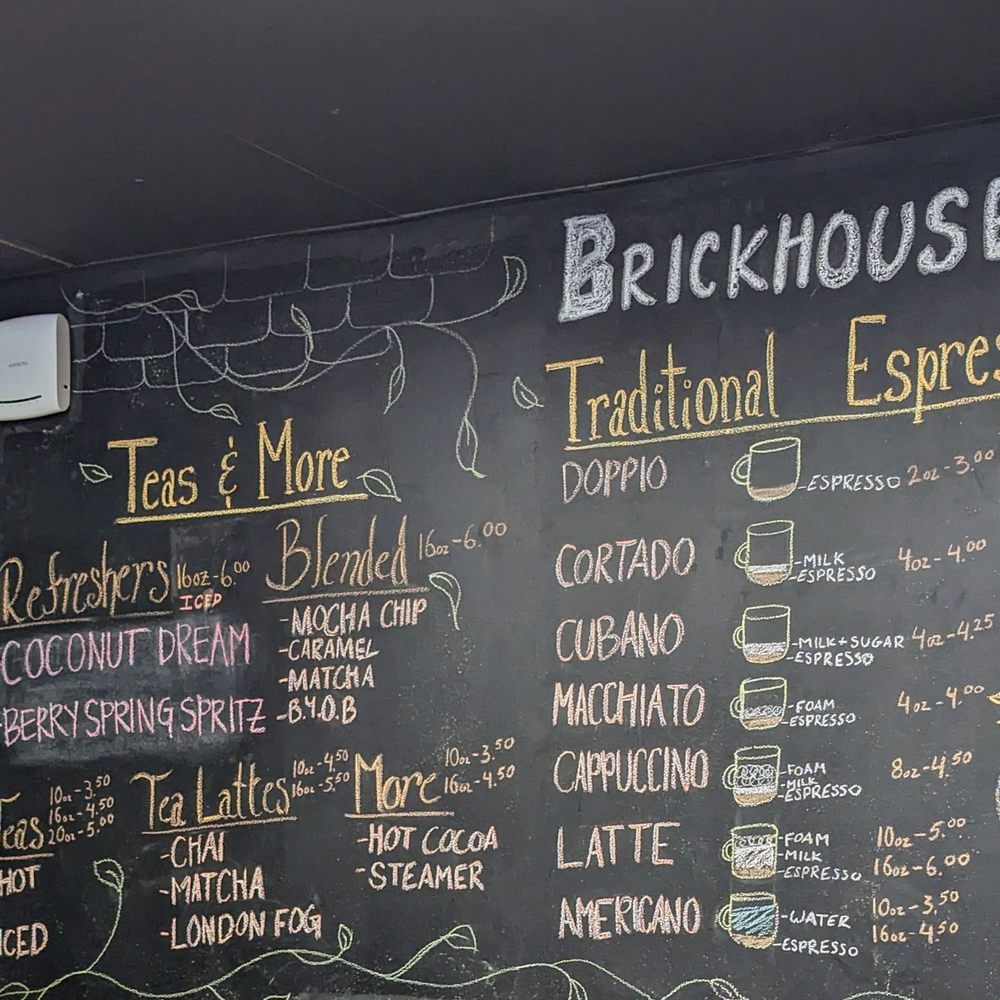 BRICKHOUSE
Teas & More
Refreshers 16oz-6.00
ICED
COCONUT DREAM
-BERRY SPRING SPRITZ
Blended 16oz-6.00
-MOCHA CHIP
-CARAMEL
-MATCHA
-B.Y.O.B
Teas 10oz-3.50
16oz-4.50
20oz-5.00
HOT
ICED
Tea Lattes 10oz-4.50
16oz-5.50
-CHAI
-MATCHA
-LONDON FOG
More 10oz-3.50
16oz-4.50
-HOT COCOA
-STEAMER
Traditional Espres
DOPPIO -ESPRESSO 2oz-3.00
CORTADO -MILK 4oz-4.00
-ESPRESSO
CUBANO -MILK+SUGAR 4oz-4.25
-ESPRESSO
MACCHIATO -FOAM 4oz-4.00
-ESPRESSO
CAPPUCCINO -FOAM 8oz-4.50
-MILK
-ESPRESSO
LATTE -FOAM 10oz-5.00
-MILK 16oz-6.00
-ESPRESSO
AMERICANO -WATER 10oz-3.50
-ESPRESSO 16oz-4.50